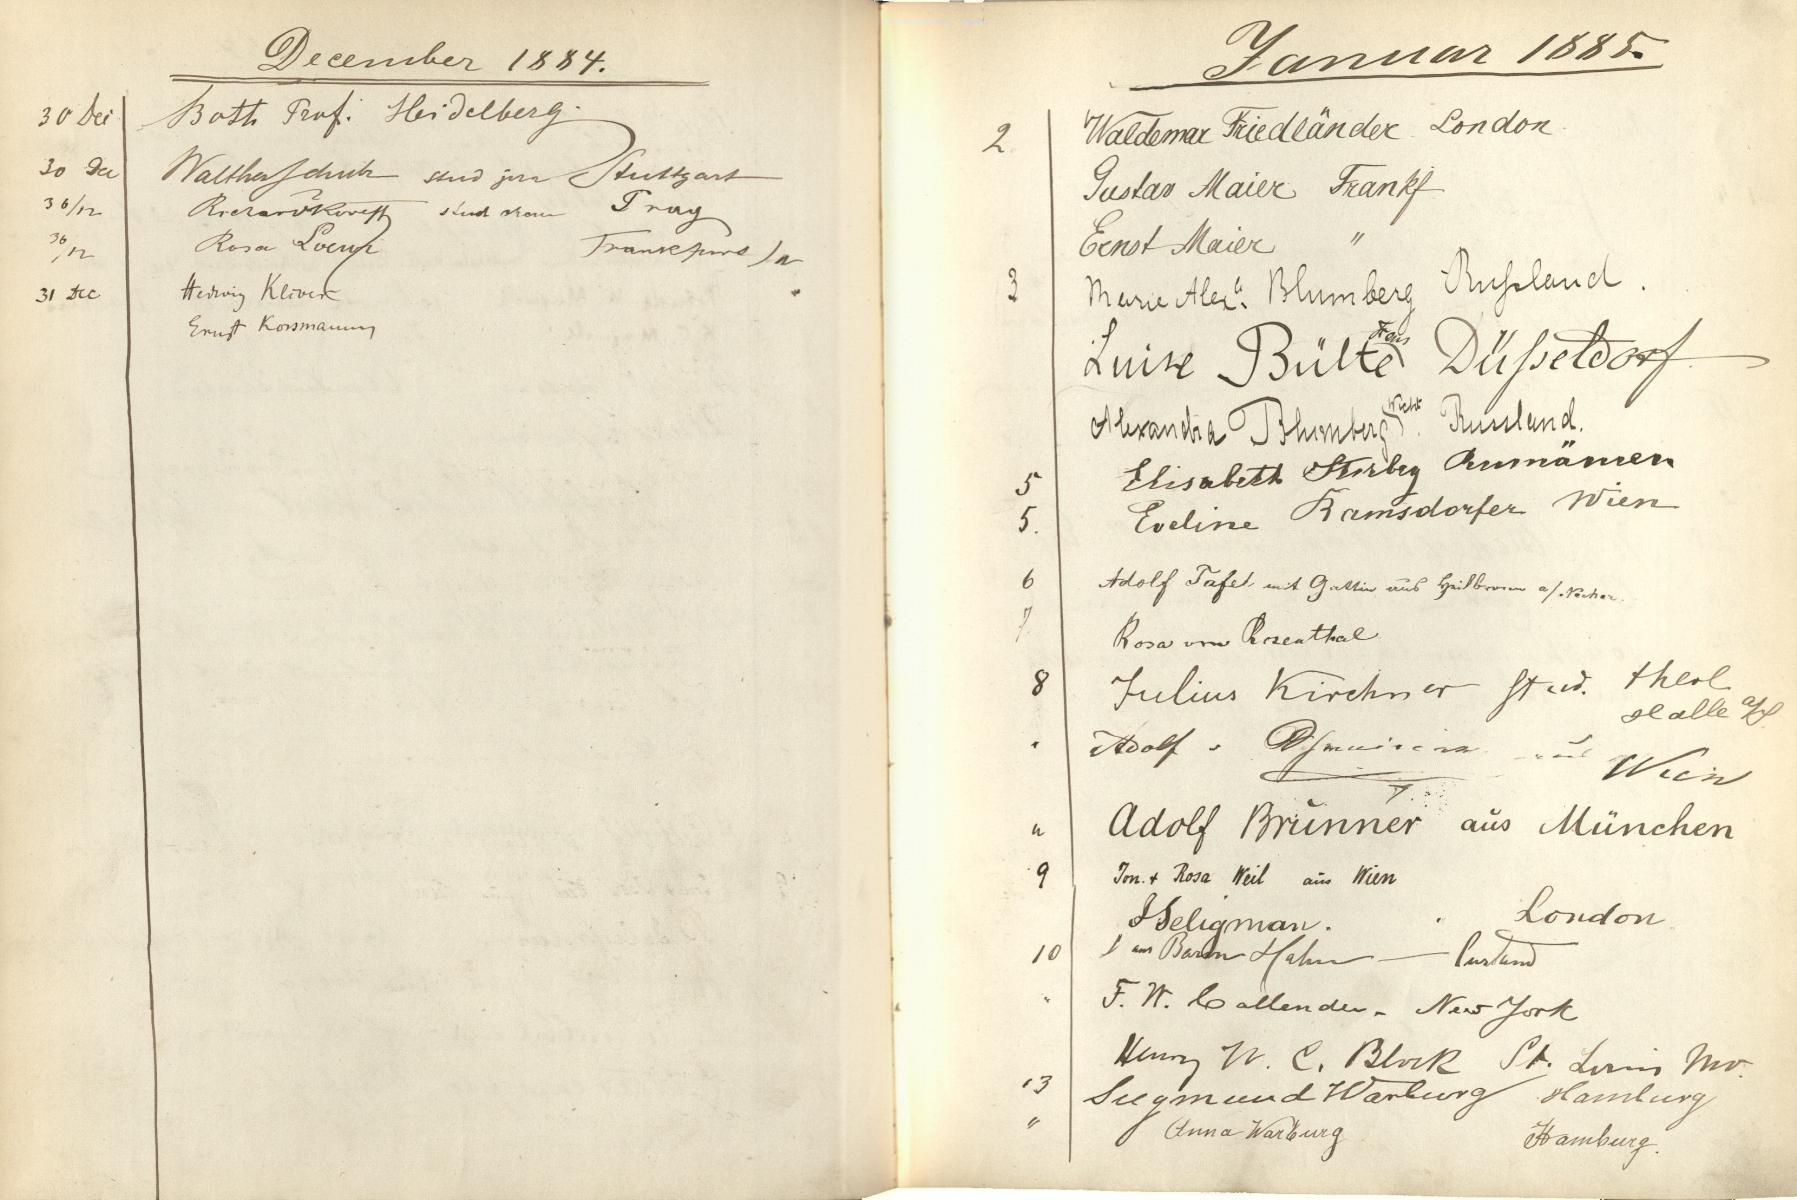 December 1884.
30 Dec Both Prof. Heidelberg
30 Dec stud jur Stuttgart
30/12 stud Prag
30/12 Rosa Loewi Frankfurt
31 Dec Hedwig
Ernst
Januar 1885.
2 Waldemar Friedländer London
Gustav Maier Frankf
Ernst Maier "
3 Marie Alex. Blumberg Russland.
Luise Bülte Düsseldorf
Alexandra Blumberg Russland.
5 Elisabeth Stirbey Rumänien
5. Eveline Ramsdorfer Wien
6 Adolf Tafel mit Gattin aus Heilbronn a/Neckar.
7 Rosa von Rosenthal
8 Julius Kirchner stud. theol
Halle a/S
" Adolf v aus Wien
" Adolf Brunner aus München
9 Ion. + Rosa Weil aus Wien
Seligman. London
10 Baron Hahn — Curland
" F. W. Callender - New York
Henry W. C. Block St. Louis Mo.
13 Siegmund Warburg Hamburg
" Anna Warburg Hamburg.